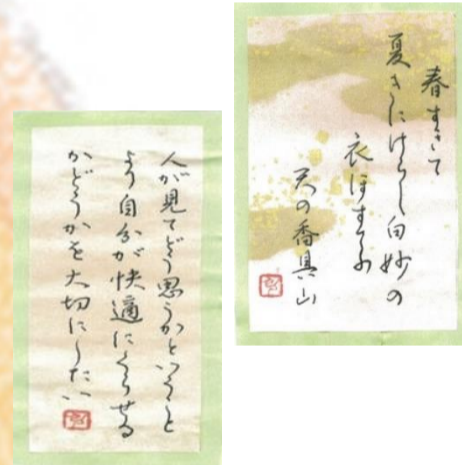 春すぎて
夏きにけらし白妙の
衣ほすてふ
天の香具山
人が見てどう思うかということ
より自分が快適にくらせる
かどうかを大切にしたい